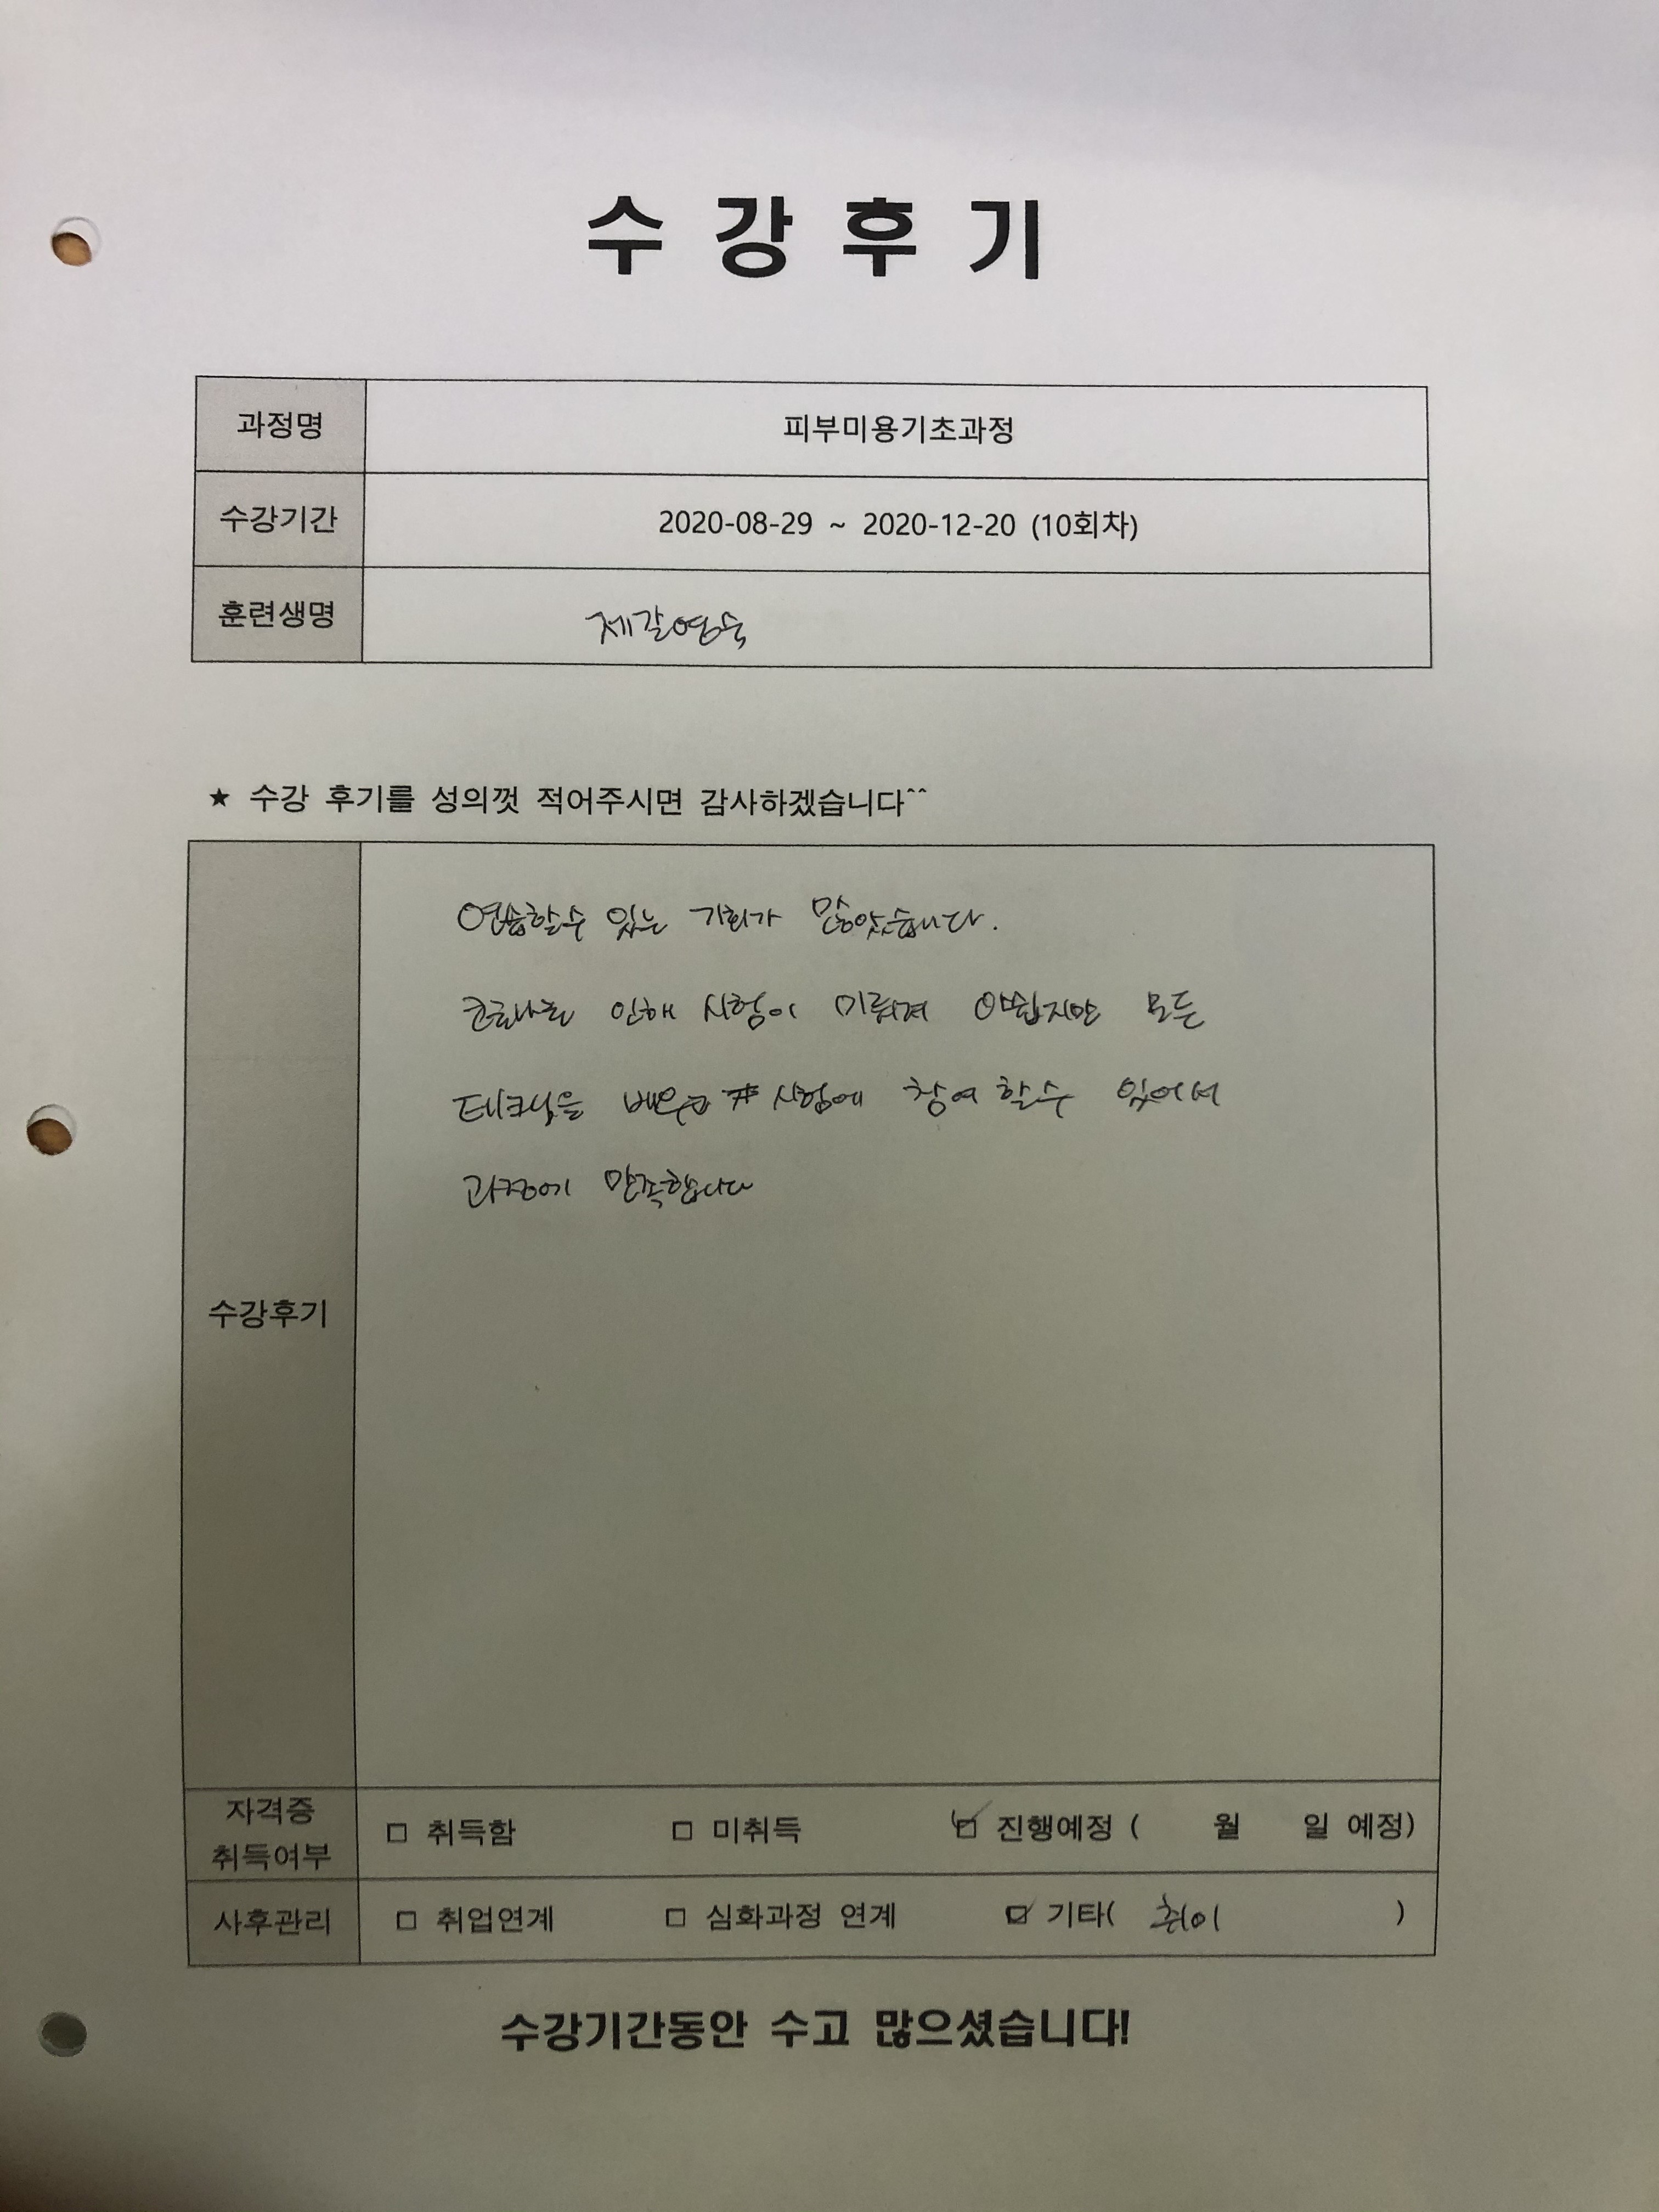 수강후기
과정명 피부미용기초과정
수강기간 2020-08-29 ~ 2020-12-20 (10회차)
훈련생명 제갈영숙
★ 수강 후기를 성의껏 적어주시면 감사하겠습니다^^
연습할수 있는 기회가 많았습니다.
코로나로 인해 시험이 미뤄져 아쉽지만 모든
테크닉을 배우고 시험에 참여 할수 있어서
과정에 만족합니다
수강후기
자격증
취득여부
□ 취득함 □ 미취득 ☑ 진행예정 ( 월 일 예정)
사후관리 □ 취업연계 □ 심화과정 연계 ☑ 기타( 취미 )
수강기간동안 수고 많으셨습니다!